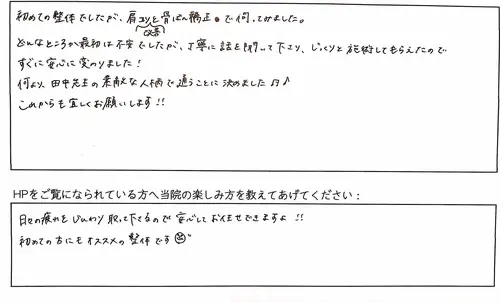 初めての整体でしたが、肩コリと骨ばん矯正で伺ってみました。
改善
どんなところか最初は不安でしたが、丁寧に話を聞いて下さり、じっくりと施術してもらえたので
すぐに安心に変わりました!
何より、田中先生の素敵な人柄で通うことに決めました♪
これからも宜しくお願いします!!
HPをご覧になられている方へ当院の楽しみ方を教えてあげてください:
日々の疲れをじんわり取って下さるので安心してお任せできますよ!!
初めての方にもオススメの整体です